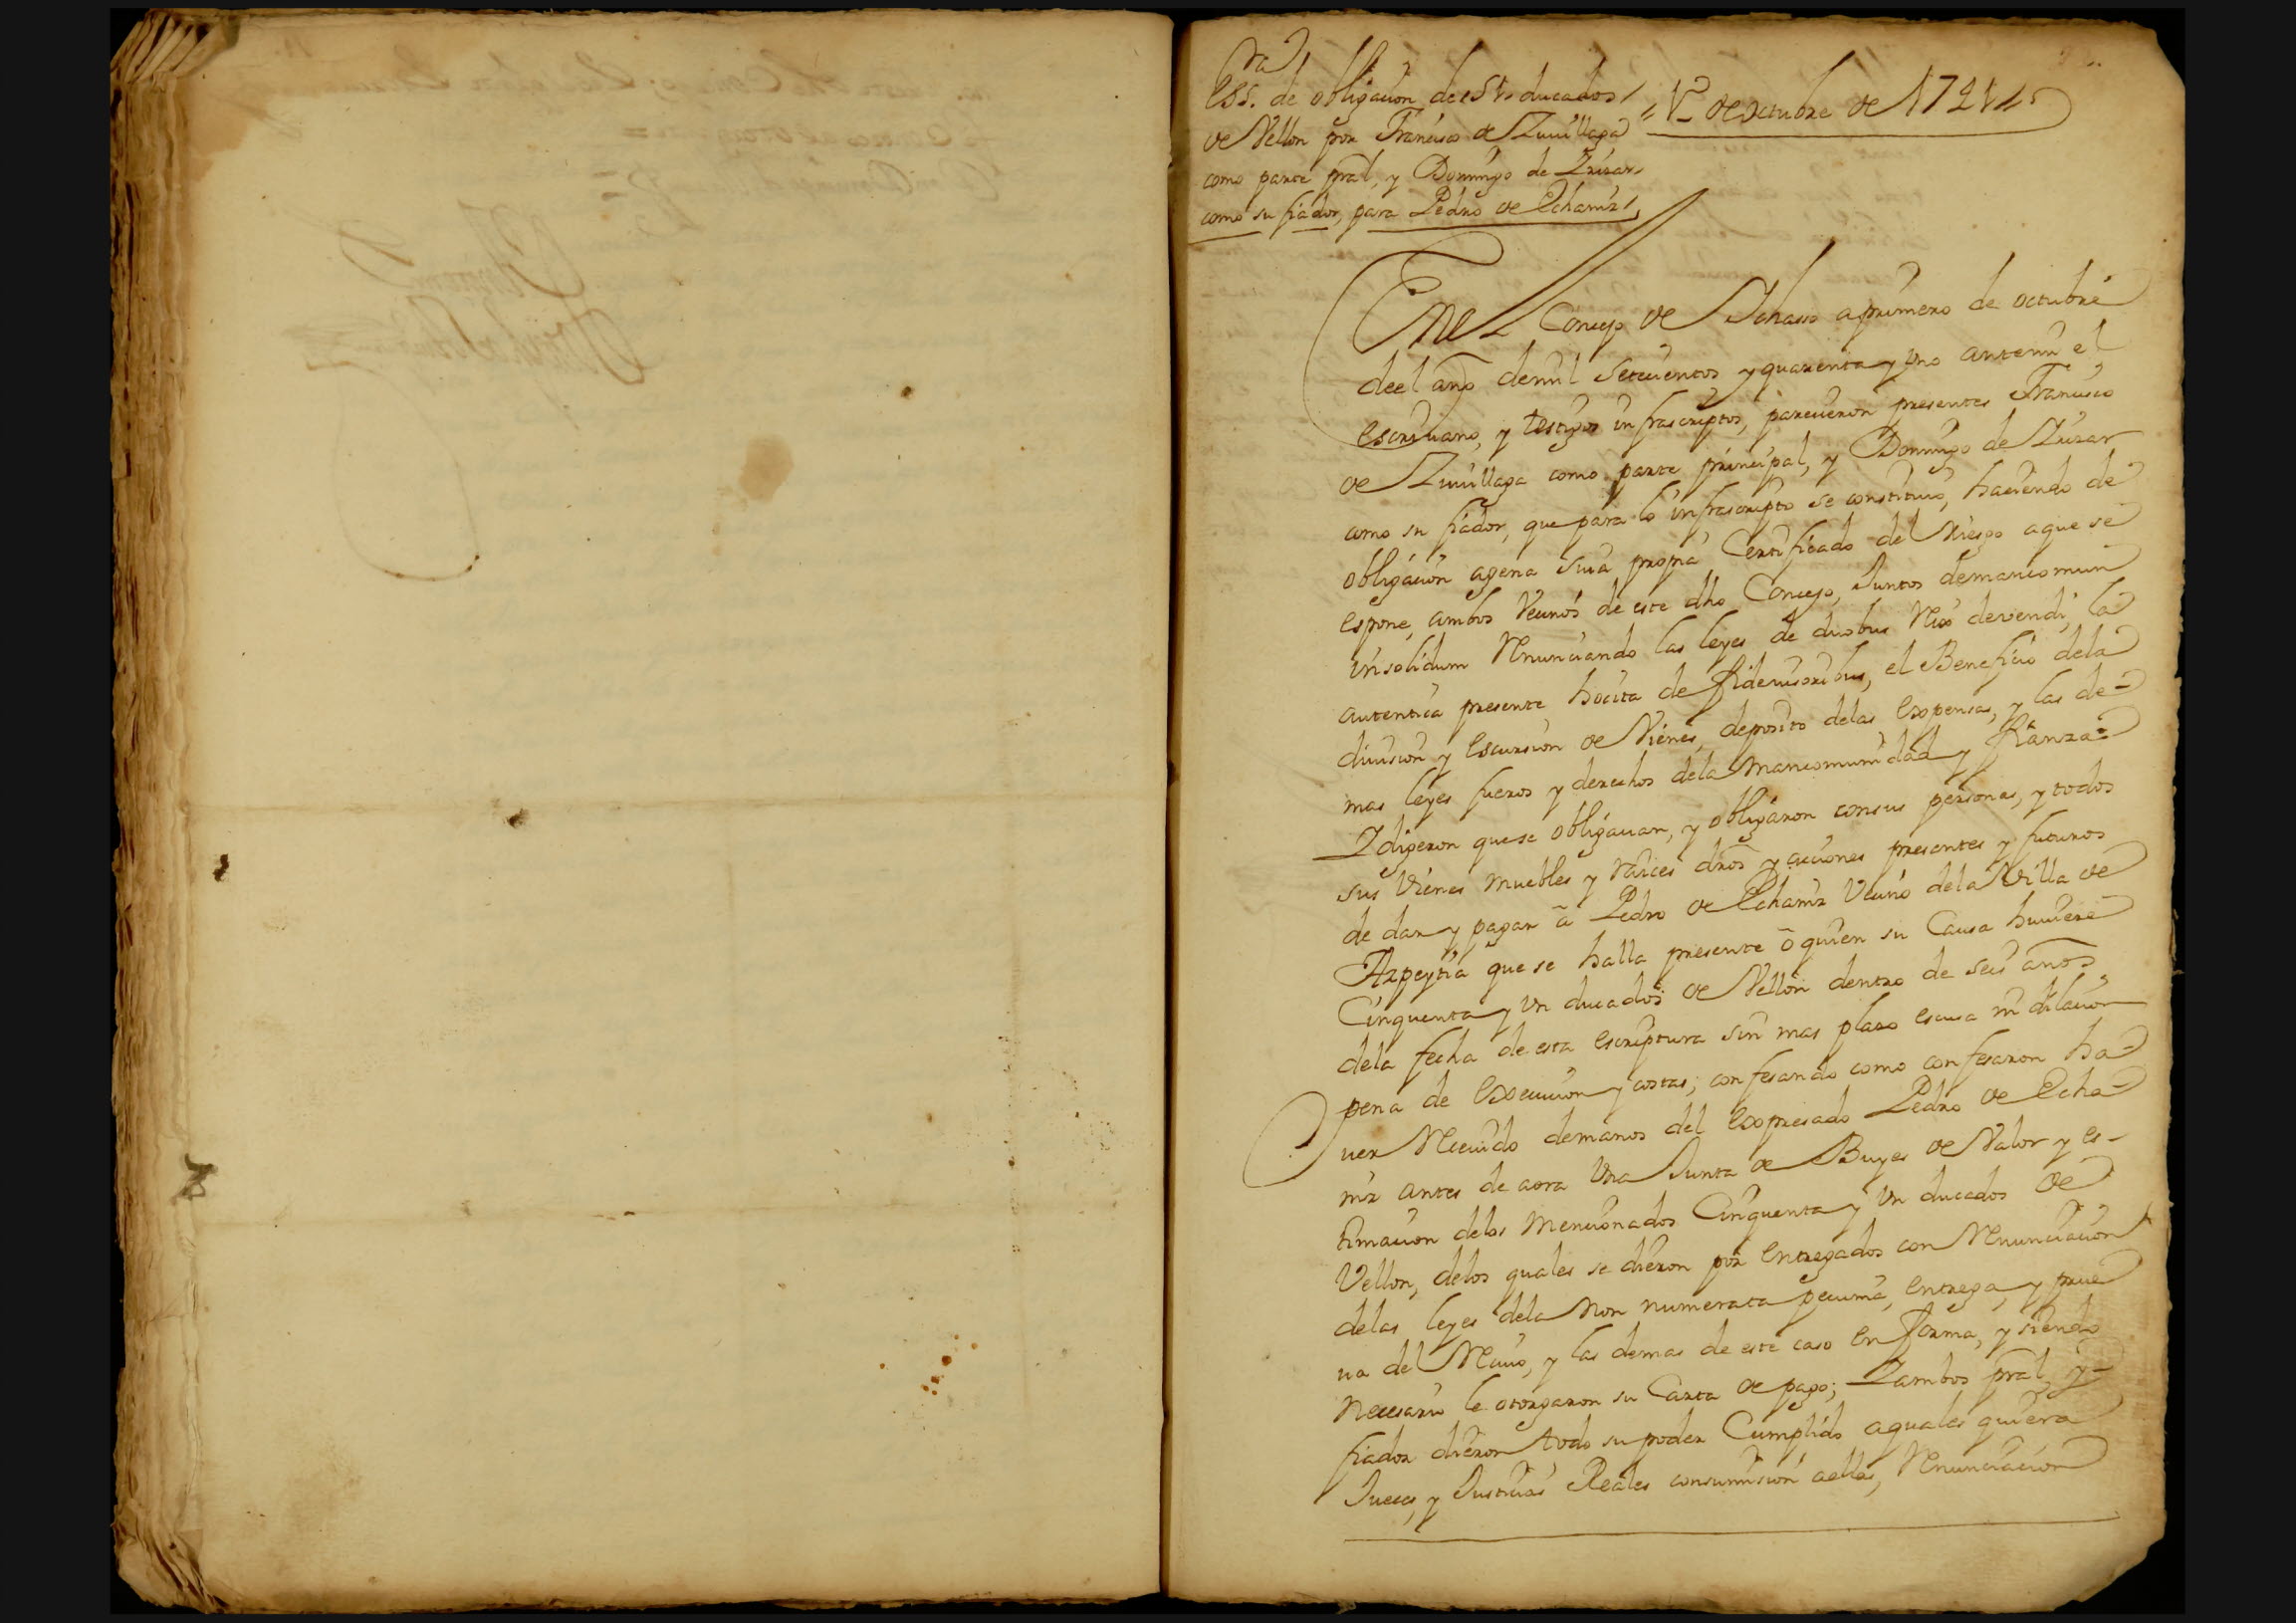 Ess.ra de obligacion de 51 ducados
de Vellon por Francisco de Zuuillaga
como parte pral, y Domingo de Zuzar
como su fiador, para Pedro de Echaniz
1º de octubre de 1741
En el Concejo de Ichasso a primero de octubre
deel año demil setecientos y quarenta y Uno antemi el
escriuano, y testigos infrascriptos, parecieron presentes Francisco
de Zuuillaga como parte principal, y Domingo de Zuzar
como su fiador, que para lo infrascripto se constituió, haciendo de
obligacion agena suia propia Certificado del Riesgo aque se
espone, ambos Vecinos de este dho Concejo, Juntos demancomun
insolidum Renunciando las leyes de duobus Rex devendi, la
autentica presente hocita de fideiusoribus, el Beneficio dela
diuision y escursion de Vienes, deposito delas Expensas, y las de-
mas leyes fueros y derechos dela mancomunidad y fianza=
Y digeron quese obligauan, y obligaron consus personas, y todos
sus Vienes muebles y raices dros y acciones presentes y futuros
de dar y pagar â Pedro de Echaniz Vecino dela Villa de
Azpeytia que se halla presente ô quien su Causa huuiere
Cinquenta y Un ducados de Vellon dentro de seis años
dela fecha de esta escriptura sin mas plazo escusa ni dilacion
pena de Execucion y costas; confesando como confesaron ha-
uer Reciuido demanos del Expresado Pedro de Echa-
niz antes de aora Una Junta de Buyes de Valor y es-
timacion delos mencionados Cinquenta y Un ducados de
Vellon, delos quales se dieron por entregados con Renunciacion
delas leyes dela non numerata pecunia, entrega, y prue
ua del Reciuo, y las demas de este caso en forma, y siendo
necesario le otorgaron su Carta de pago; Y ambos pral y-
fiador dieron todo su poder Cumplido aquales quiera
Jueces, y Justicias Reales consumision aellas, Renunciacion